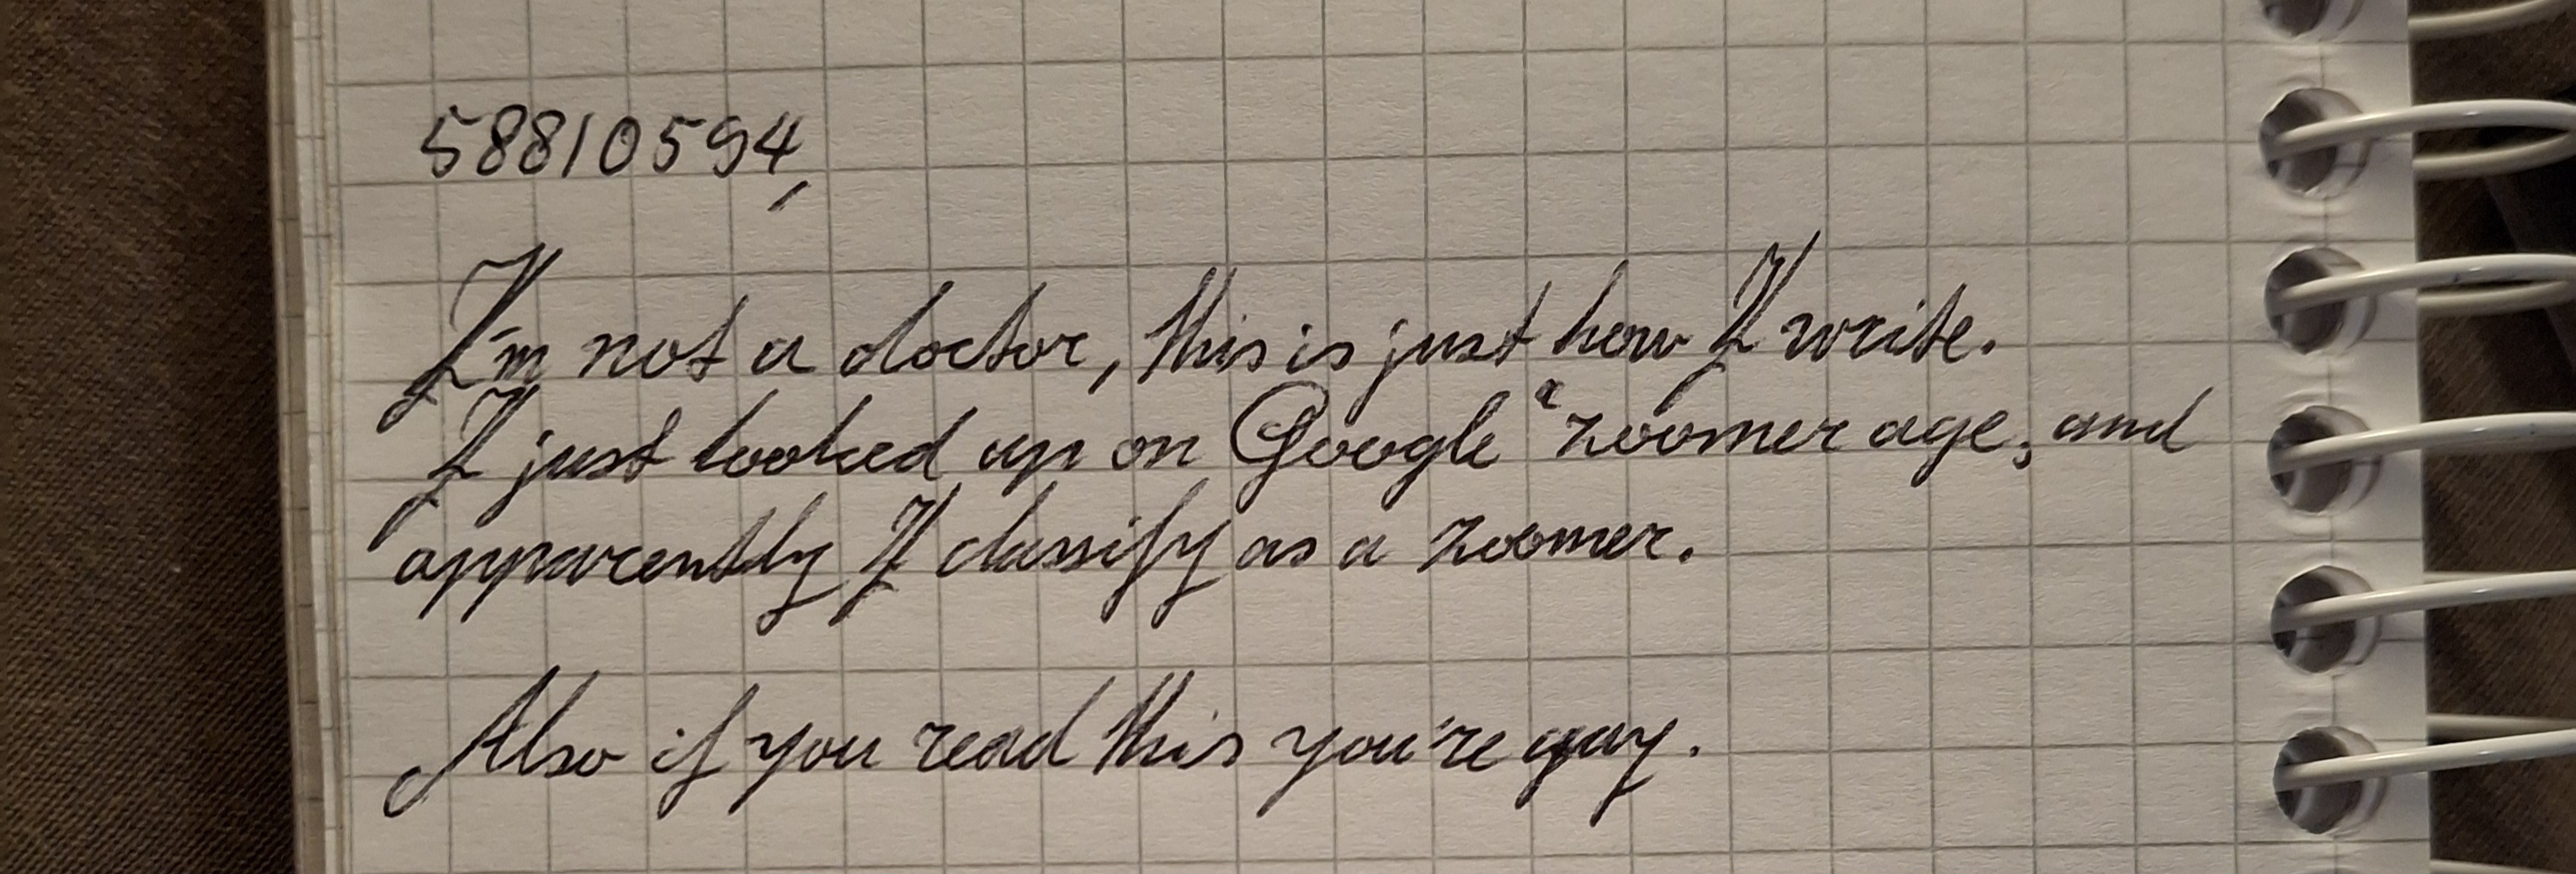 58810594,
I'm not a doctor, this is just how I write.
I just looked up on Google "zoomer age", and
apparently I classify as a zoomer.
Also if you read this you're gay.